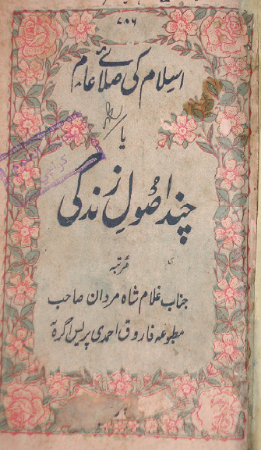 ۷۸۶
اسلام کی صلائے عام
یا
چند اصولِ زندگی
مرتبہ
جناب غلام شاہ مردان صاحب
مطبوعہ فاروقی احمدی پریس آگرہ